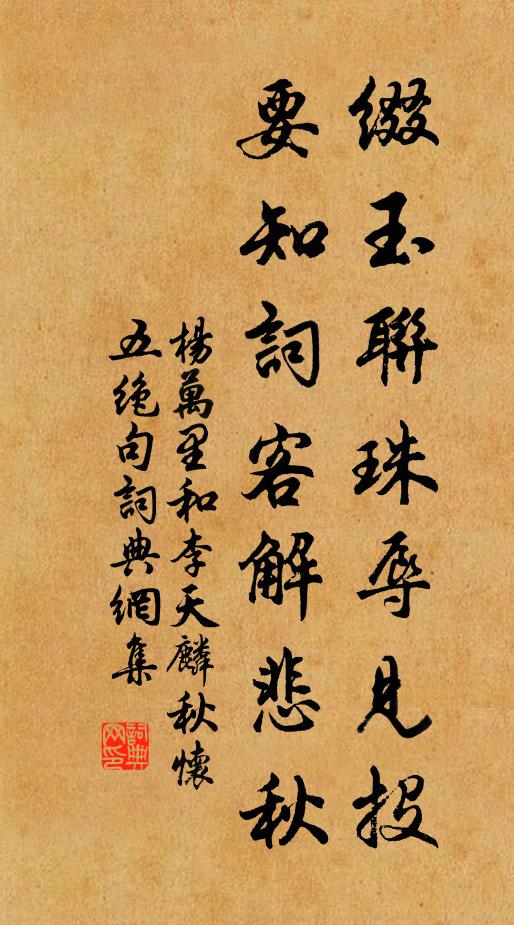 綴玉聯珠辱見投
要知詞客解悲秋
楊萬里和李天麟秋懷
五絶句詞典網集
詞典網印